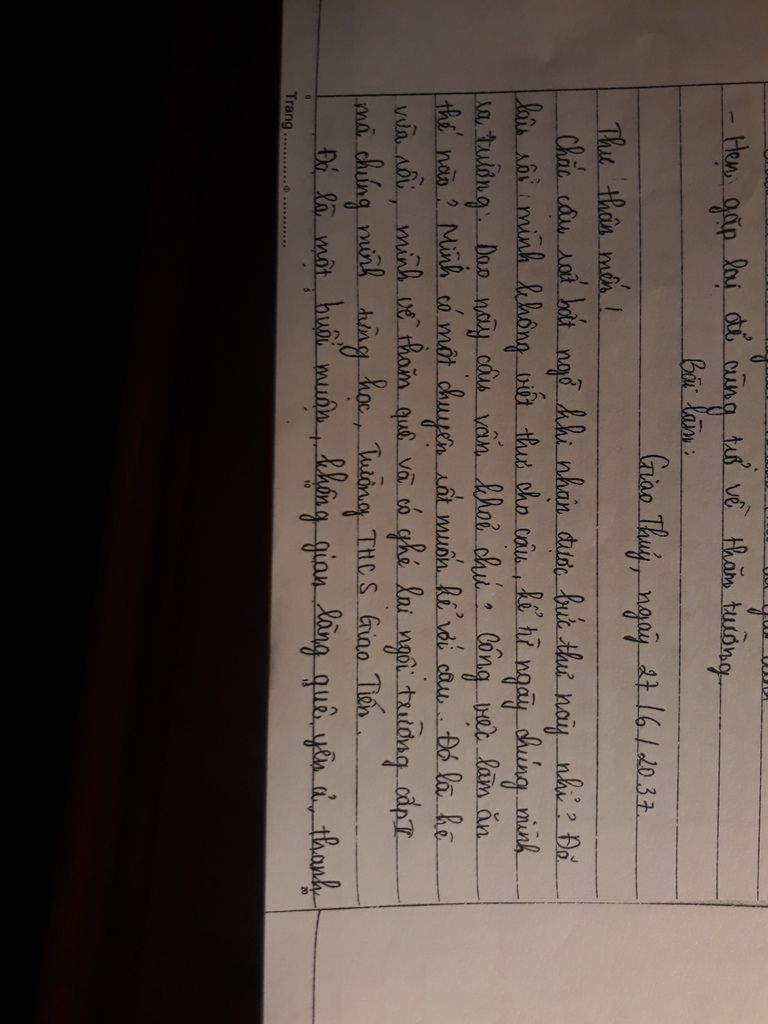 - Hẹn gặp lại để cùng trở về thăm trường.
Bài làm:
Giao Thuỷ, ngày 27/6/2037.
Thư thân mến!
Chắc cậu rất bất ngờ khi nhận được bức thư này nhỉ? Đã
lâu rồi mình không viết thư cho cậu, kể từ ngày chúng mình
ra trường. Dạo này cậu vẫn khoẻ chứ? Công việc làm ăn
thế nào? Mình có một chuyện rất muốn kể với cậu. Đó là hè
vừa rồi, mình về thăm quê và có ghé lại ngôi trường cấp II
mà chúng mình từng học, Trường THCS Giao Tiến.
Đó là một buổi muộn, không gian làng quê yên ả, thanh
Trang
0 5 10 15 20